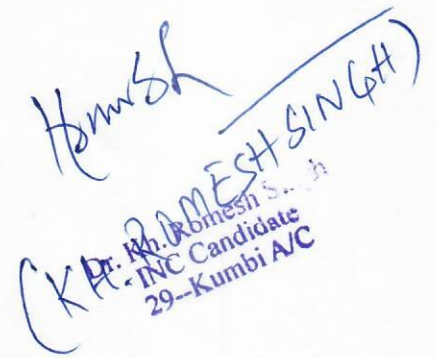 (KH. ROMESH SINGH)
Dr. Kh. Romesh
INC Candidate
29--Kumbi A/C